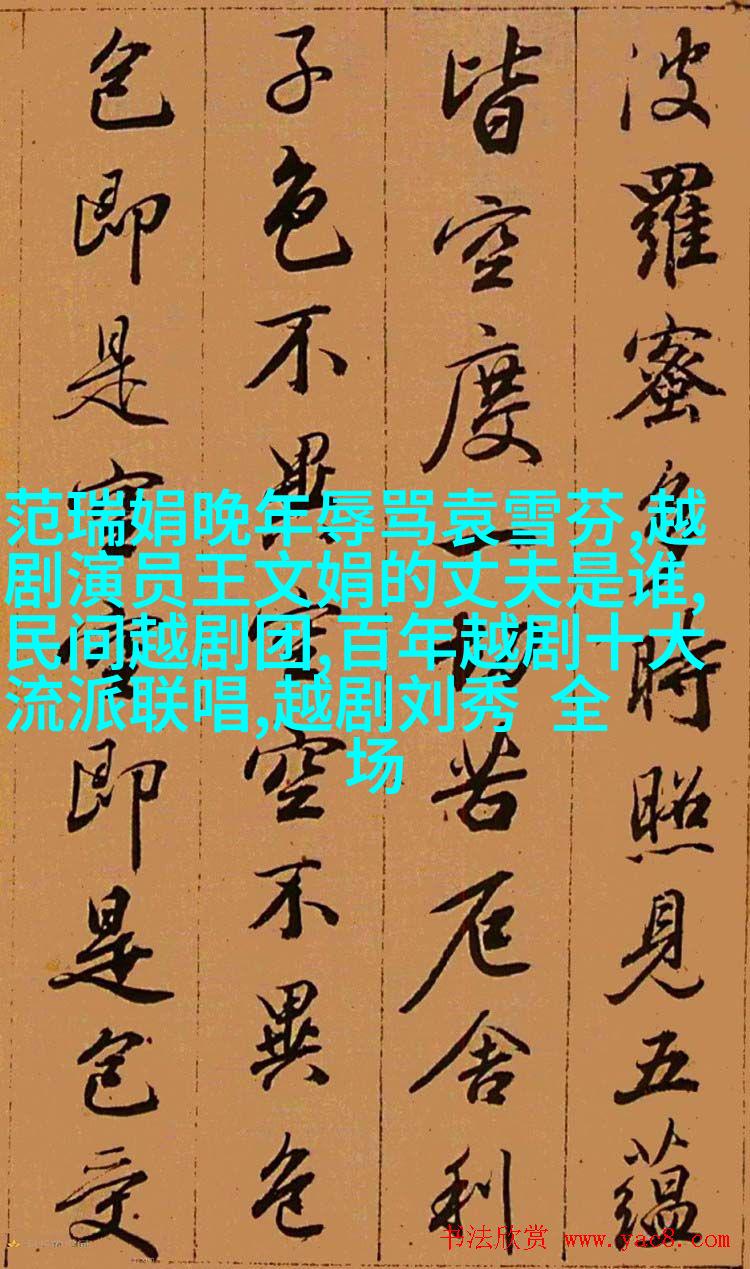 波羅蜜多時照見五蘊
皆空度一切苦厄舍利
子色不異空空不異色
色即是空空即是色受
范瑞娟晚年辱骂袁雪芬,越
剧演员王文娟的丈夫是谁,
民间越剧团,百年越剧十大
流派联唱,越剧刘秀 全
场
书法欣赏 www.yac8.com